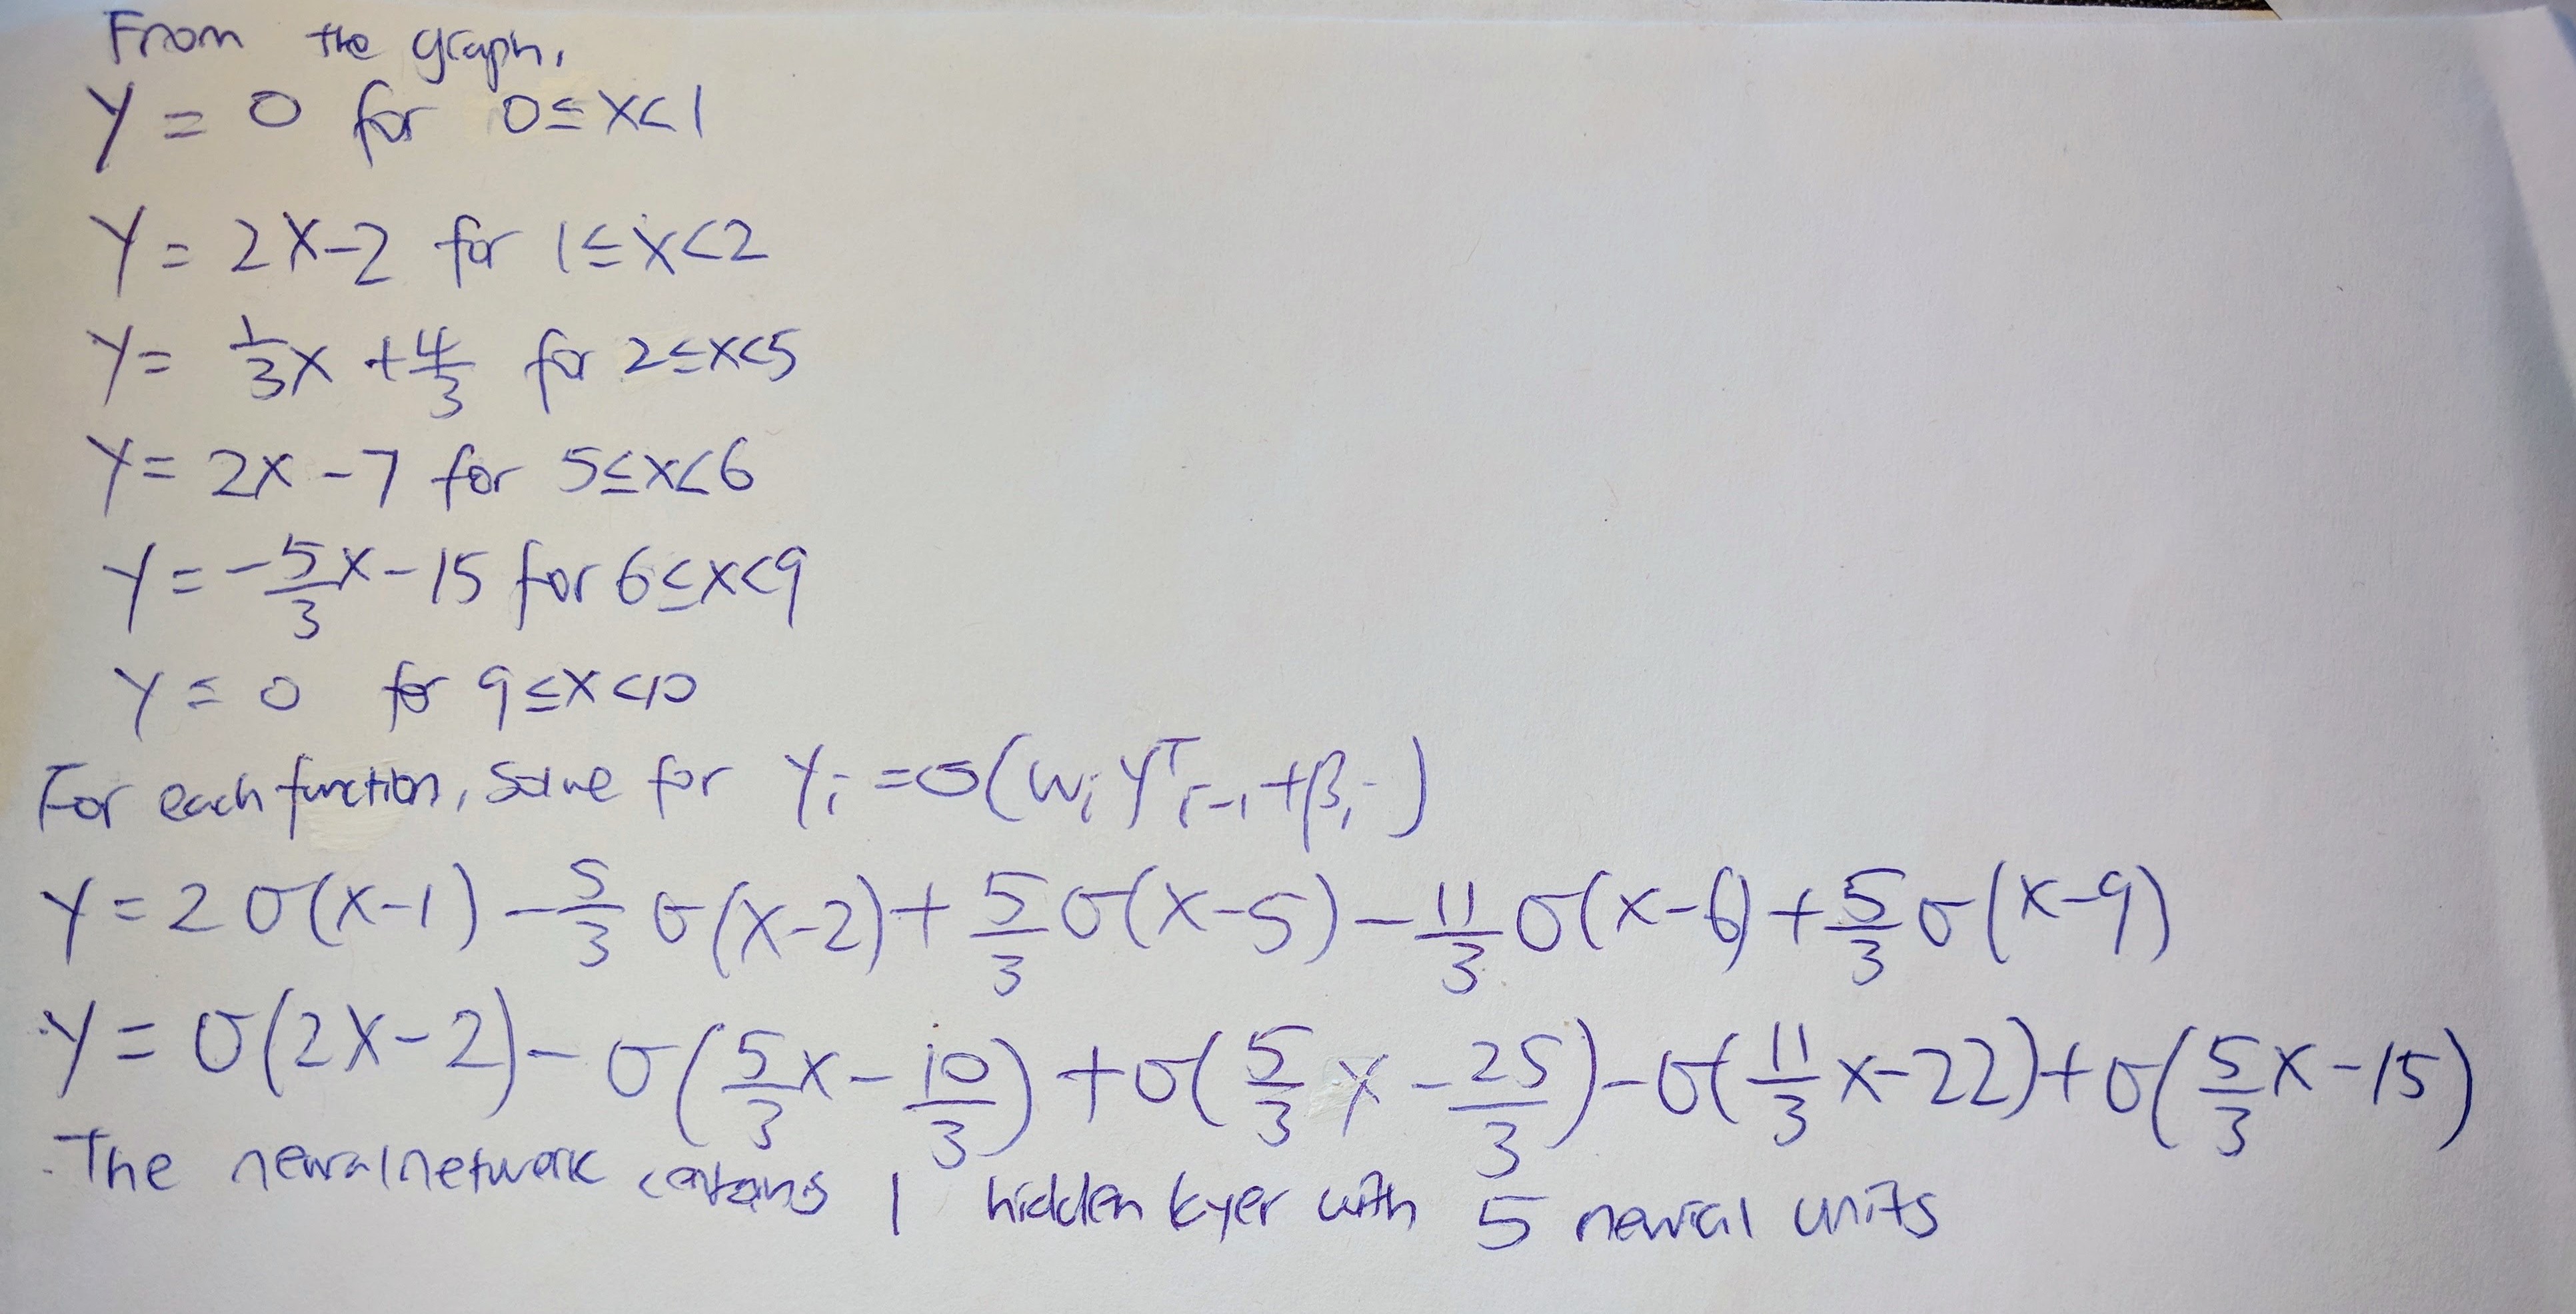 From the graph,
y = 0 for 0≤x<1
y = 2x-2 for 1≤x<2
y = 1/3x + 4/3 for 2≤x<5
y = 2x-7 for 5≤x<6
y = -5/3x-15 for 6≤x<9
y = 0 for 9≤x<10
For each function, solve for yᵢ = σ(wᵢ yᵀᵢ₋₁ + βᵢ)
y = 2σ(x-1) - 5/3σ(x-2) + 5/3σ(x-5) - 11/3σ(x-6) + 5/3σ(x-9)
y = σ(2x-2) - σ(5/3x - 10/3) + σ(5/3x - 25/3) - σ(11/3x-22) + σ(5/3x-15)
The neural network contains 1 hidden layer with 5 neural units